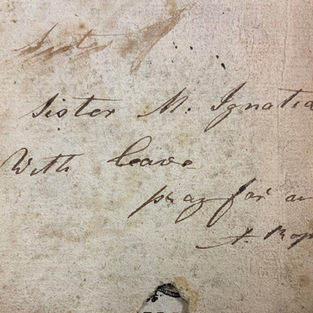 Sister
Sister M. Ignatia
With leave
pray for